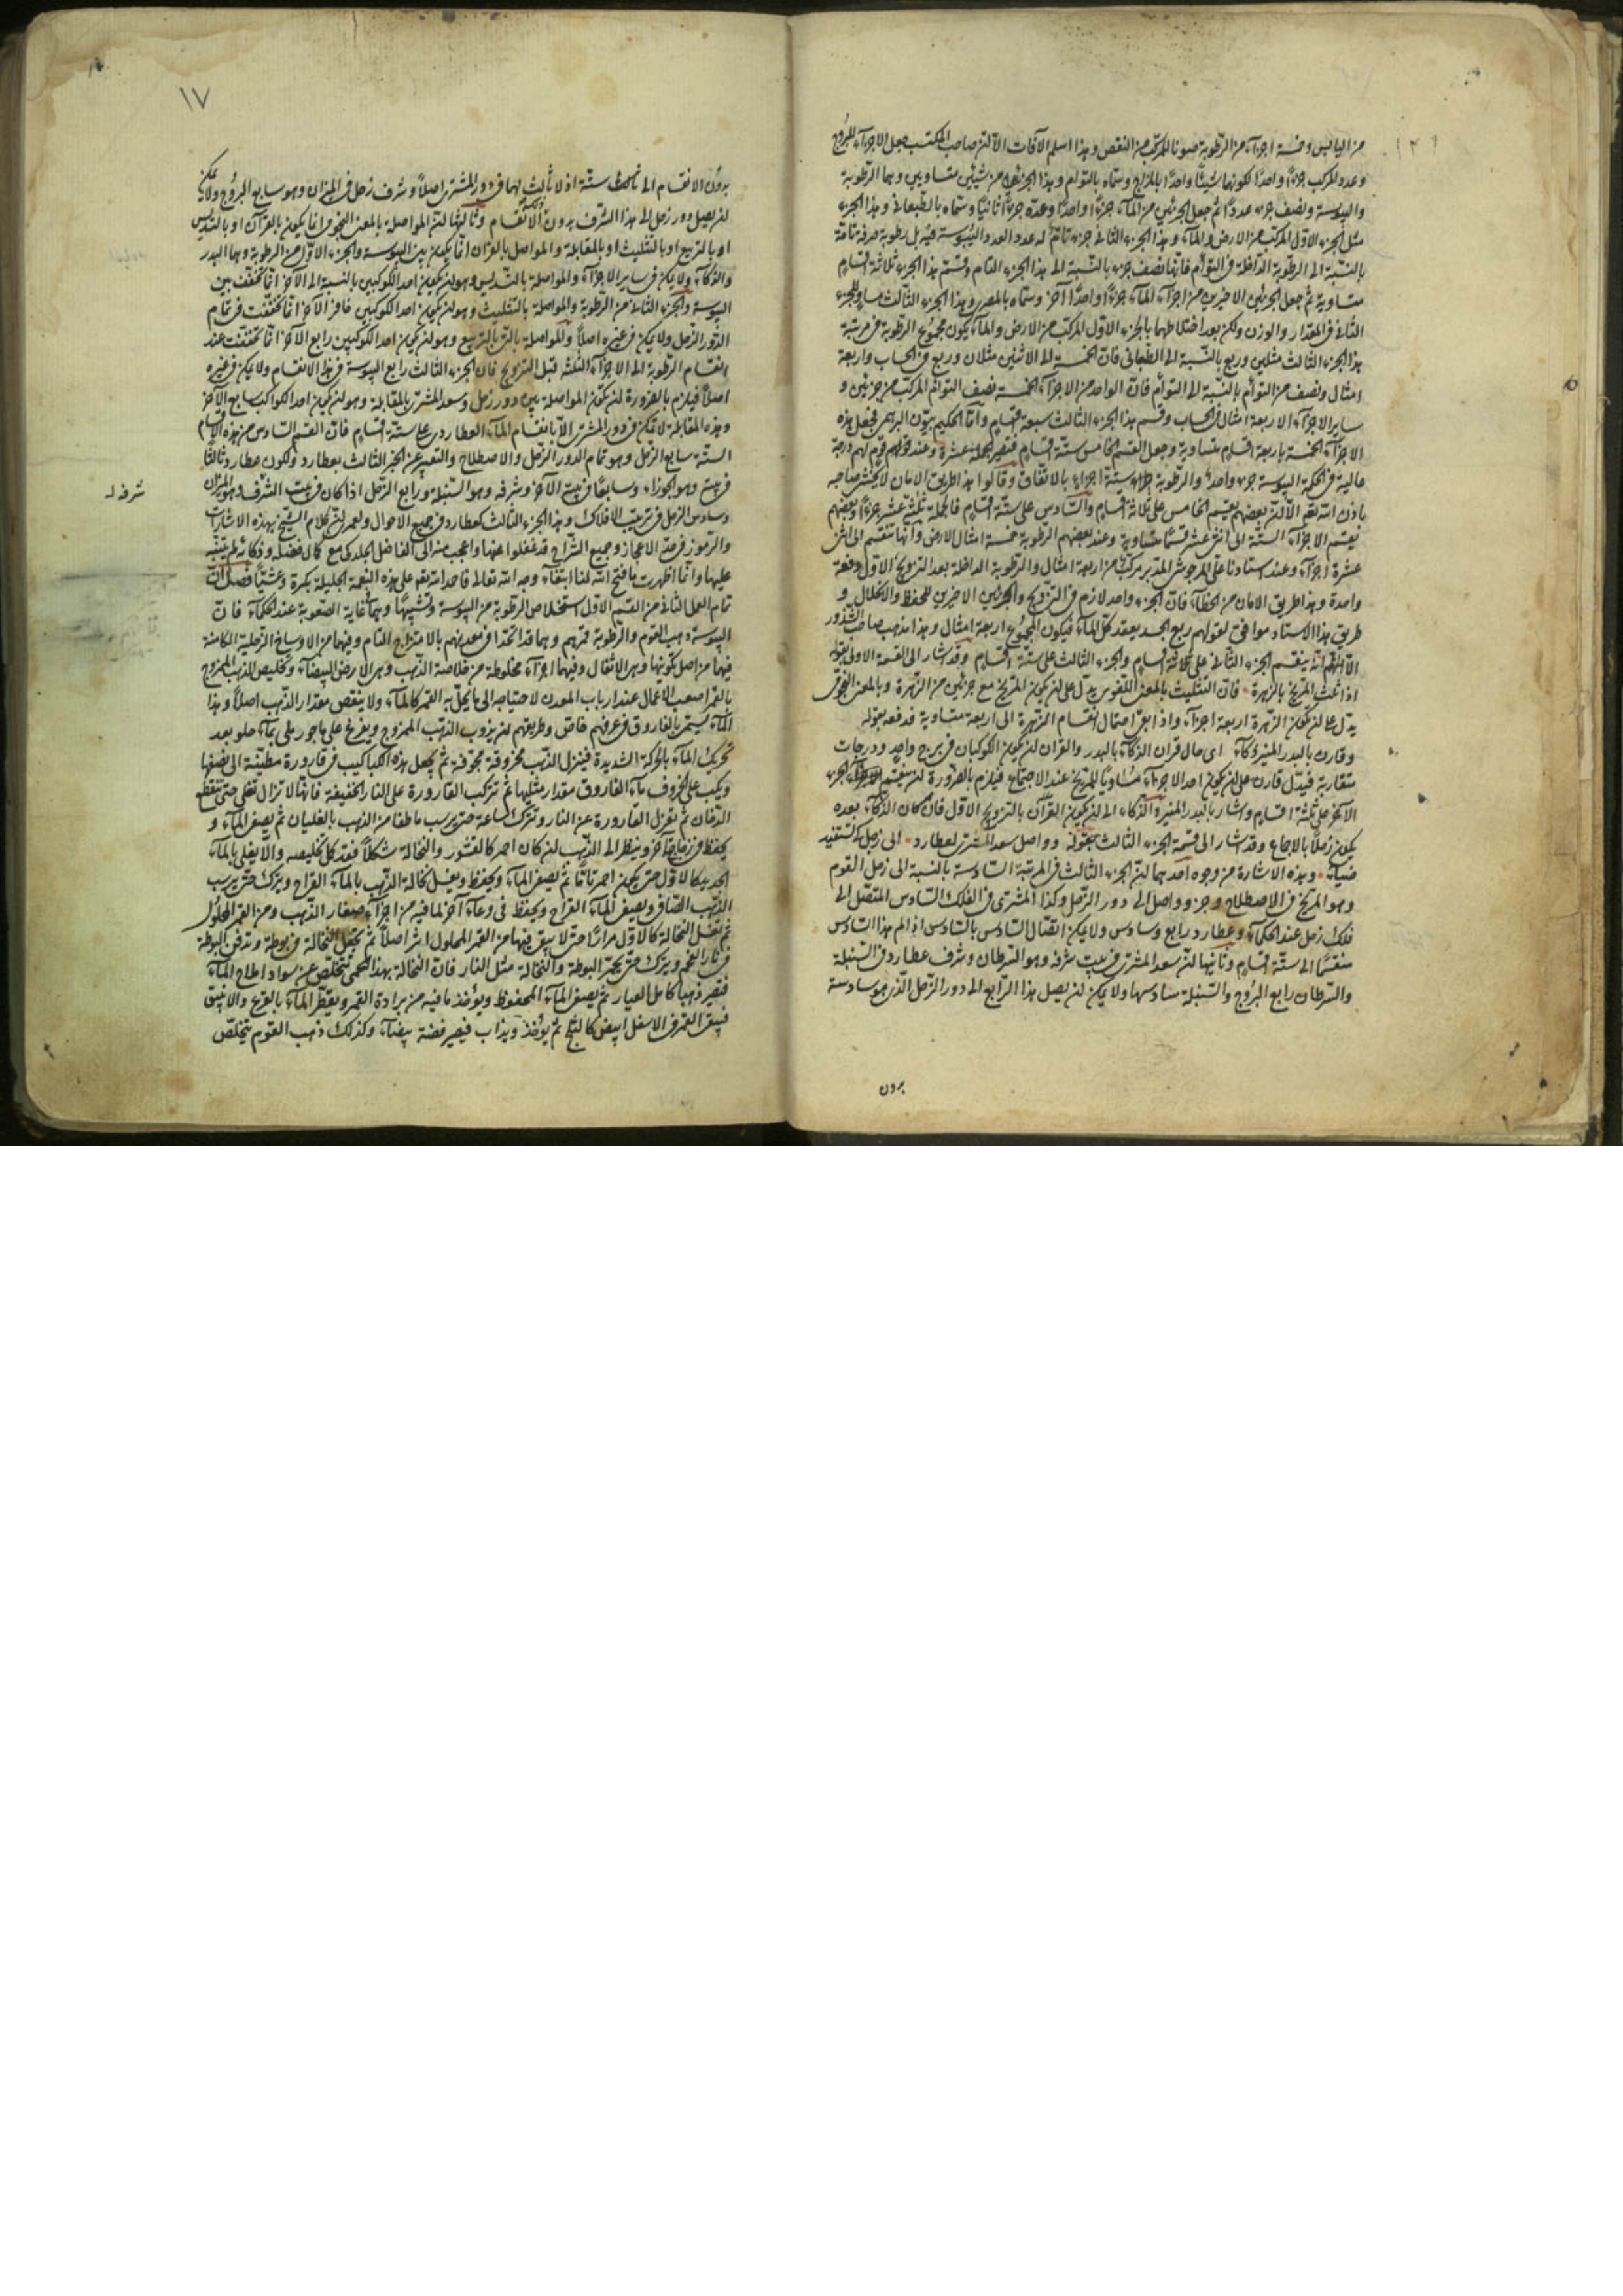 من اليابس وخمسة اجزآء من الرطوبة صونا للمركب من النقص وهذا اسلم الآفات الا ان صاحب المكتسب جعل الاجزآء
وعدد المركب جزءا واحدا لكونها شيئا واحدا بالمزاج وسماه بالتوام وهذا الجزء من شيئين متساويين وهما الرطوبة
واليبوسة ونصف جزء عددا ثم جعل الجزئين من المآء جزءا واحدا وعده جزءا ثانيا وسماه بالطبعانى وهذا الجزء
مثل الجزء الاول المركب من الارض والمآء وهذا الجزء الثانى جزء تام له عدد العدد واليبوسة فيه بل رطوبة صرفة تامة
بالنسبة الى الرطوبة الداخلة فى التوأم فانها نصف جزء بالنسبة الى هذا الجزء التام وقسم هذا الجزء ثلاثة اقسام
متساوية ثم جعل الجزئين الاخيرين من اجزآء المآء جزءا واحدا آخر وسماه بالمصرى وهذا الجزء الثالث مساو للجزء
الثانى فى المقدار والوزن ولكن بعد اختلاطهما بالجزء الاول المركب من الارض والمآء يكون مجموع الرطوبة فى مرتبة
هذا الجزء الثالث مثلين وربع بالنسبة الى الطبعانى فان الخمسة الى الاثنين مثلان وربع فى الحساب واربعة
امثال ونصف من التوأم بالنسبة الى التوأم فان الواحد من الاجزآء الخمسة نصف التوأم المركب من جزئين و
ساير الاجزآء الاربعة امثال فى الحساب وقسم هذا الجزء الثالث سبعة اقسام واما الحكيم بيون البراهمى فجعل هذه
الاجزآء الخمسة باربعة اقسام متساوية وجعل القسم الخامس ستة اقسام فتصير الجملة عشرة وعند قولهم قوم لهم درجة
عالية فى الحكمة اليبوسة جزء واحد والرطوبة ستة اجزاء بالاتفاق وقالوا هذا طريق الامان لا يخشى صاحبه
باذن الله تعم الا ان بعضهم يقسم الخامس على ثلاثة اقسام والسادس على ستة اقسام فالجملة ثلثة عشر جزءا وبعضهم
يقسم الاجزآء الستة الى اثنى عشر قسما متساوية وعند بعضهم الرطوبة خمسة امثال الارض وانها تنقسم الى اثنى
عشرة اجزآء وعند استادنا على المرجوش المدبر مركب من اربعة امثال والرطوبة الداخلة بعد التزويج الاول دفعة
واحدة وهذا طريق الامان من الخطآء فان الجزء واحد لازم فى التزويج والجزئين الاخيرين للحفظ والانحلال و
طريق هذا الاستاد موافق لقولهم ربع الجسد يعقد كل المآء فيكون المجموع اربعة امثال وهذا مذهب صاحب الشذور
الا انه ينقسم الجزء الثانى على ثلاثة اقسام والجزء الثالث على ستة اقسام وقد اشار الى القسمة الاولى بقوله
اذا ثلث المريخ بالزهرة فان التثليث بالمعنى اللغوى يدل على ان يكون المريخ مع جزئين من الزهرة وبالمعنى النجومى
يدل على ان تكون الزهرة اربعة اجزآء واذا بقى احتمال انقسام الزهرة الى اربعة متساوية فدفعه بقوله
وقارن بالبدر المنير ذكآء اى حال قران الذكآء بالبدر والقران ان يكون الكوكبان فى برج واحد ودرجات
متقاربة فيدل قارن على ان يكون احد الاجزآء مساويا للمريخ عند الاجتماع فيلزم بالضرورة ان ينقسم الجزء
الآخر على ثلثة اقسام واشار بالبدر المنير والذكاء الى ان يكون القرآن بالتزويج الاول فان كان الذكآء بعده
يكون زحلا بالاجماع وقد اشار الى قسمة الجزء الثالث بقوله وواصل سعد المشترى لعطارد الى زحل كى تستفيد
ضيآء وهذه الاشارة من وجوه احدهما ان الجزء الثالث فى المرتبة السادسة بالنسبة الى زحل القوم
وهو المريخ فى الاصطلاح وجزو وواصل الى دور الزحل وكذا المشترى فى الفلك السادس المتصل الى
فلك زحل عند الحكمآء وعطارد رابع وسادس ولا يمكن اتصال السادس بالسادس اذ لم هذا السادس
منقسما الى ستة اقسام وثانيها ان سعد المشترى فى بيت شرفه وهو السرطان وشرف عطارد فى السنبلة
والسرطان رابع البروج والسنبلة سادسها ولا يمكن ان يصل هذا الرابع الى دور الزحل الذى هو سادسة
بدون
١٧
بدون الانقسام الى ستة اذ لا ثالث لهما فى دور المشترى اصلا وشرف زحل فى الميزان وهو سابع البروج ولا يمكن
ان يصل دور زحل الى هذا الشرف بدون الانقسام وثالثها ان المواصلة بالمعنى النجومى انما يكون بالقرآن او بالتسديس
او بالتربيع او بالتثليث او بالمقابلة والمواصل بالقران انما يكون بين اليبوسة والجزء الاول من الرطوبة وهما البدر
والذكآء ولا يمكن فى ساير الاجزآء والمواصلة بالتسديس وهو ان يكون احد الكوكبين بالنسبة الى الآخر انما تحققت بين
اليبوسة والجزء الثانى من الرطوبة والمواصلة بالتثليث وهو ان يكون احد الكوكبين خامس الآخر انما تحققت فى تمام
الدور الزحل ولا يمكن فى غيره اصلا والمواصلة بالتربيع وهو ان يكون احد الكوكبين رابع الآخر انما تحققت عند
انقسام الرطوبة الى الاجزآء الثلثة قبل التزويج فان الجزء الثالث رابع اليبوسة فى هذا الانقسام ولا يمكن فى غيره
اصلا فيلزم بالضرورة ان تكون المواصلة بين دور زحل وسعد المشترى بالمقابلة وهو ان يكون احد الكواكب سابع الآخر
وهذه المقابلة لا تمكن فى دور المشترى الا بانقسام المآء العطاردى على ستة اقسام فان القسم السادس من هذه الاقسام
الستة سابع الزحل وهو تمام الدور الزحل والاصطلاح والتعبير عن الجزء الثالث بعطارد ولكون عطارد ثالثا
فى بيته وهو الجوزاء وسابعا فى بيت الآخر وشرفه وهو السنبلة ورابع الزحل اذا كان فى بيت الشرف وهو الميزان
شرفه
وسادس الزحل فى ترتيب الافلاك وهذا الجزء الثالث كعطارد فى جميع الاحوال ولعمرى ان كلام الشيخ بهذه الاشارات
والرموز فى حد الاعجاز وجميع الشراح قد غفلوا عنها واعجب منه الى الفاضل الجلدكى مع كمال فضله وذكائه لم يتنبه
عليها وانما اظهرت ما فتح الله لنا ابتغآء وجه الله تعالى فاحمد الله تعم على هذه النعمة الجليلة بكرة وعشيا فصل الثا
تمام العمل الثانى من القسم الاول استخلاص الرطوبة من اليبوسة وتشبيبها وهما غاية الصعوبة عند الحكمآء فان
اليبوسة ذهب القوم والرطوبة قمرهم وهما قد اتحدا فى معدنهم بالامتزاج التام وفيهما من الاوساخ الزحلية الكامنة
فيهما من اصل تكونها وهى الاثقال وفيهما اجزآء مخلوطة من خلاصة الذهب وهى الارض البيضآء وتخليص الذهب الممزوج
بالقمر اصعب الاعمال عند ارباب المعدن لاحتياجه الى ما يحل به القمر كالمآء ولا ينقص مقدار الذهب اصلا وهذا
المآء يسمى بالفاروق فى عرفهم خاص وطريقهم ان يذوب الذهب الممزوج ويفرغ على ماجور ملى بمآء حلو بعد
تحريك المآء بالحركة الشديدة فينزل الذهب مخروقة مجوفة ثم يجعل هذه الكباكيب فى قارورة مطينة الى نصفها
ويكب على الخروف مآء الفاروق مقدار مثليها ثم تركب القارورة على النار الخفيفة فانها لا تزال تغلى حتى تنقطع
الدخان ثم تعزل القارورة عن النار وتترك ساعة حتى يرسب ما طفا من الذهب بالغليان ثم يصفى المآء و
يحفظ فى زجاج آخر وينظر الى الذهب ان كان احمر كالقشور والنخالة شكلا فقد كمل تخليصه والا يغلى بالمآء
الجديد كالاول حتى يكون احمر تاما ثم يصفى المآء ويحفظ ويغسل نخالة الذهب بالمآء القراح ويترك حتى يرسب
الذهب الصافى ويصفى المآء القراح ويحفظ فى وعآء آخر لما فيه من اجزآء صغار الذهب ومن القمر المحلول
ثم تغسل النخالة كالاول مرارا حتى لا يبقى فيها من القمر المحلول اثر اصلا ثم يجعل النخالة فى بوطة وتدفن البوطة
فى نار الفحم ويترك حتى يحمر البوطة والنخالة مثل النار فان النخالة بهذا الحمى تتخلص عن سواد املاح المآء
فتصير ذهبا كامل العيار ثم يصفى المآء المحفوظ ويؤخذ ما فيه من برادة القمر ويقطر المآء بالقرع والانبيق
فيبقى القمر فى الاسفل ابيض كالثلج ثم يؤخذ ويذاب فيصير فضة بيضآء وكذلك ذهب القوم يتخلص